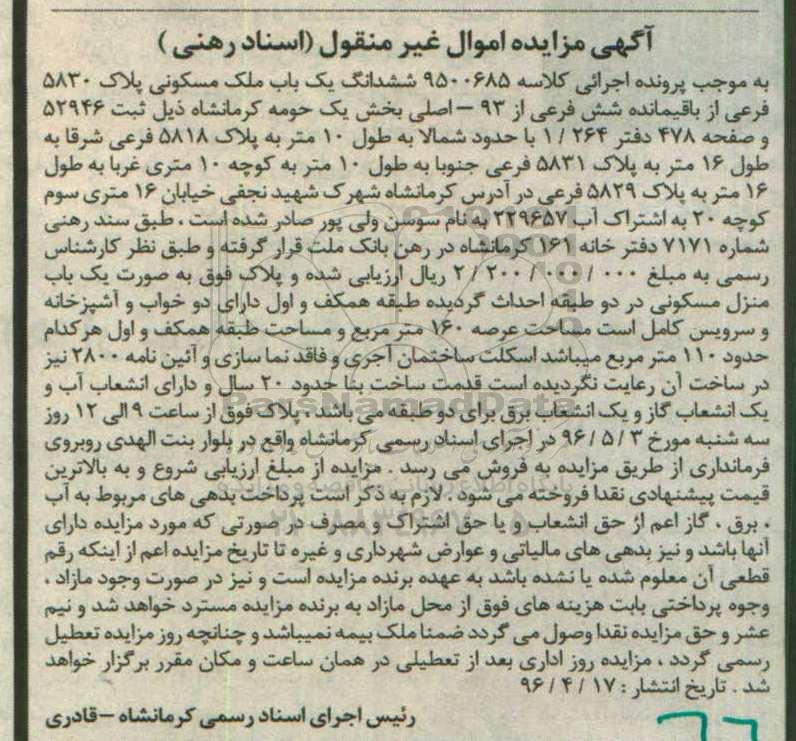 آگهی مزایده اموال غیر منقول (اسناد رهنی)
به موجب پرونده اجرائی کلاسه ۹۵۰۰۶۸۵ ششدانگ یک باب ملک مسکونی پلاک ۵۸۳۰
فرعی از باقیمانده شش فرعی از ۹۳ – اصلی بخش یک حومه کرمانشاه ذیل ثبت ۵۲۹۴۶
و صفحه ۴۷۸ دفتر ۲۶۴ / ۱ با حدود شمالا به طول ۱۰ متر به پلاک ۵۸۱۸ فرعی شرقا به
طول ۱۶ متر به پلاک ۵۸۳۱ فرعی جنوبا به طول ۱۰ متر به کوچه ۱۰ متری غربا به طول
۱۶ متر به پلاک ۵۸۲۹ فرعی در آدرس کرمانشاه شهرک شهید نجفی خیابان ۱۶ متری سوم
کوچه ۲۰ به اشتراک آب ۲۲۹۶۵۷ به نام سوسن ولی پور صادر شده است ، طبق سند رهنی
شماره ۷۱۷۱ دفتر خانه ۱۶۱ کرمانشاه در رهن بانک ملت قرار گرفته و طبق نظر کارشناس
رسمی به مبلغ ۰۰۰ / ۰۰۰ / ۲۰۰ / ۲ ریال ارزیابی شده و پلاک فوق به صورت یک باب
منزل مسکونی در دو طبقه احداث گردیده طبقه همکف و اول دارای دو خواب و آشپزخانه
و سرویس کامل است مساحت عرصه ۱۶۰ متر مربع و مساحت طبقه همکف و اول هر کدام
حدود ۱۱۰ متر مربع میباشد اسکلت ساختمان آجری و فاقد نما سازی و آئین نامه ۲۸۰۰ نیز
در ساخت آن رعایت نگردیده است قدمت ساخت بنا حدود ۲۰ سال و دارای انشعاب آب و
یک انشعاب گاز و یک انشعاب برق برای دو طبقه می باشد ، پلاک فوق از ساعت ۹ الی ۱۲ روز
سه شنبه مورخ ۳ / ۵ / ۹۶ در اجرای اسناد رسمی کرمانشاه واقع در بلوار بنت الهدی روبروی
فرمانداری از طریق مزایده به فروش می رسد . مزایده از مبلغ ارزیابی شروع و به بالاترین
قیمت پیشنهادی نقدا فروخته می شود . لازم به ذکر است پرداخت بدهی های مربوط به آب
، برق ، گاز اعم از حق انشعاب و یا حق اشتراک و مصرف در صورتی که مورد مزایده دارای
آنها باشد و نیز بدهی های مالیاتی و عوارض شهرداری و غیره تا تاریخ مزایده اعم از اینکه رقم
قطعی آن معلوم شده یا نشده باشد به عهده برنده مزایده است و نیز در صورت وجود مازاد ،
وجوه پرداختی بابت هزینه های فوق از محل مازاد به برنده مزایده مسترد خواهد شد و نیم
عشر و حق مزایده نقدا وصول می گردد ضمنا ملک بیمه نمیباشد و چنانچه روز مزایده تعطیل
رسمی گردد ، مزایده روز اداری بعد از تعطیلی در همان ساعت و مکان مقرر برگزار خواهد
شد . تاریخ انتشار : ۱۷ / ۴ / ۹۶
رئیس اجرای اسناد رسمی کرمانشاه – قادری
ParsNamadData